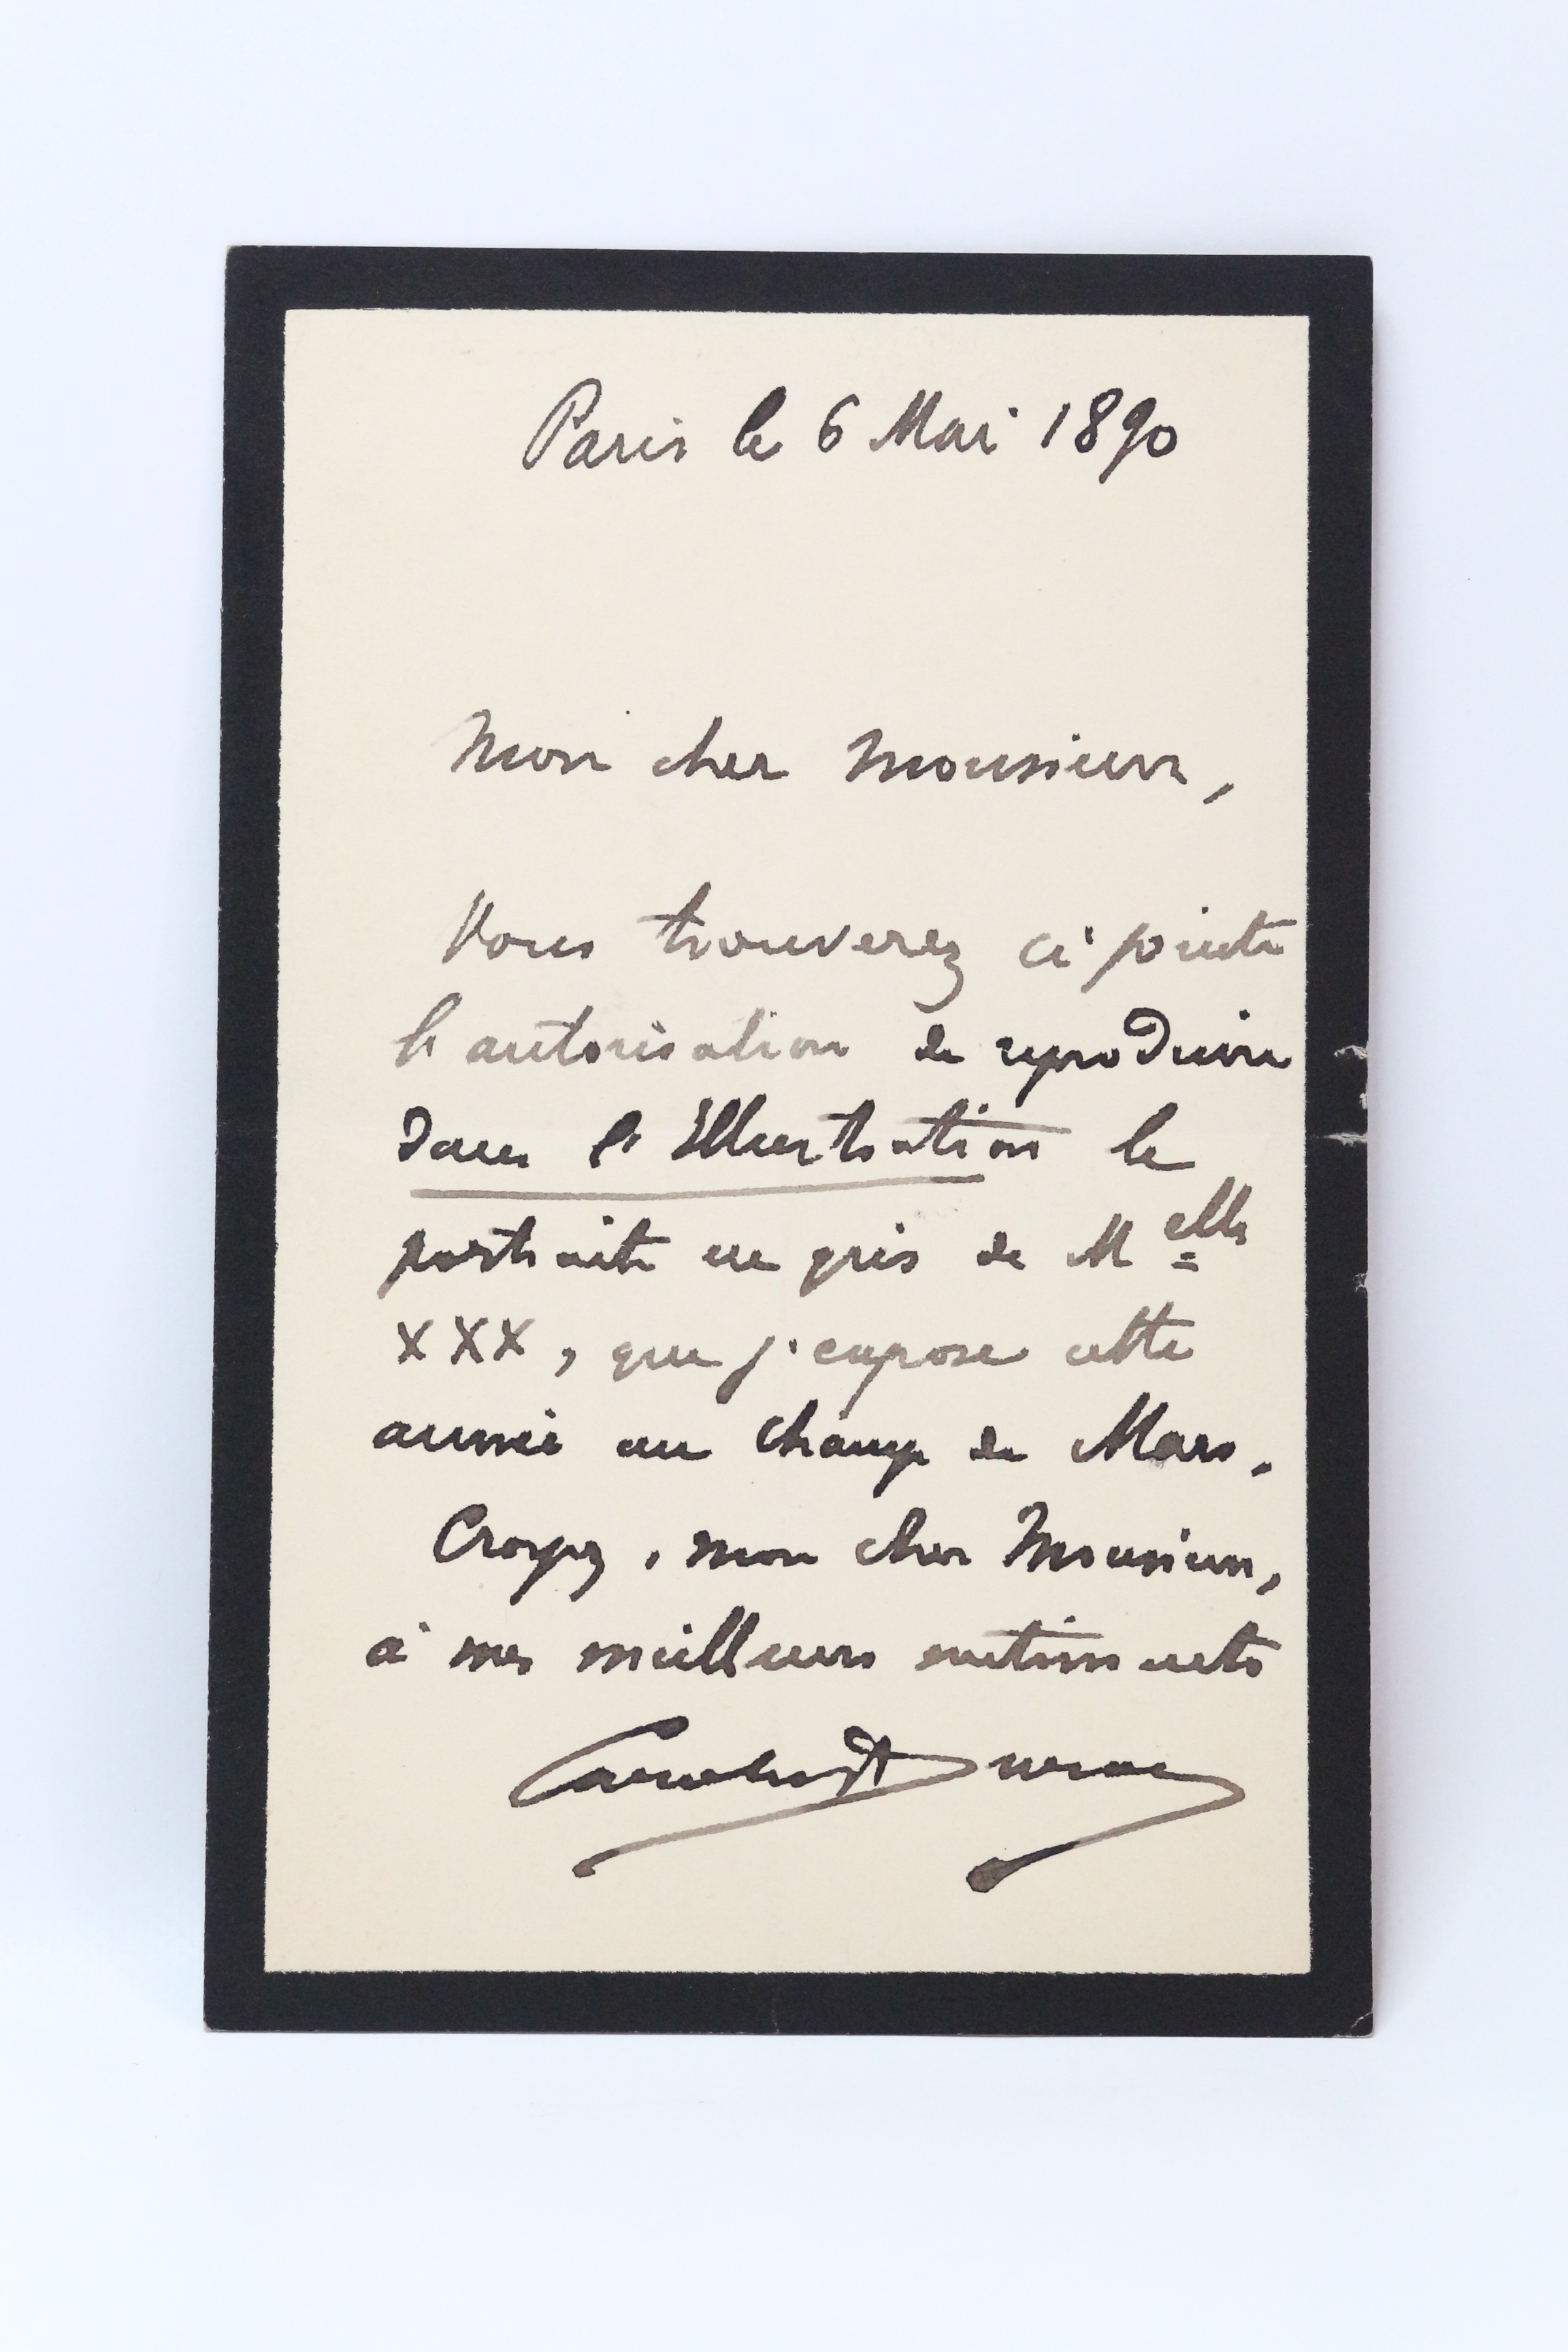 Paris le 6 Mai 1890
Mon cher Monsieur,
Vous trouverez ci jointe
l'autorisation de reproduire
dans l'Illustration le
portrait en gris de Melle
XXX, que j'expose cette
année au Champ de Mars.
Croyez, mon cher Monsieur,
à mes meilleurs sentiments
Carolus Duran